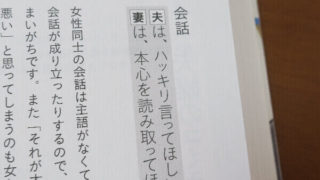 会話
夫は、ハッキリ言ってほし
妻は、本心を読み取ってほ
女性同士の会話は主語がなくて
会話が成り立ったりするので、
まいがちです。また「それが大
悪い」と思ってしまうのも女